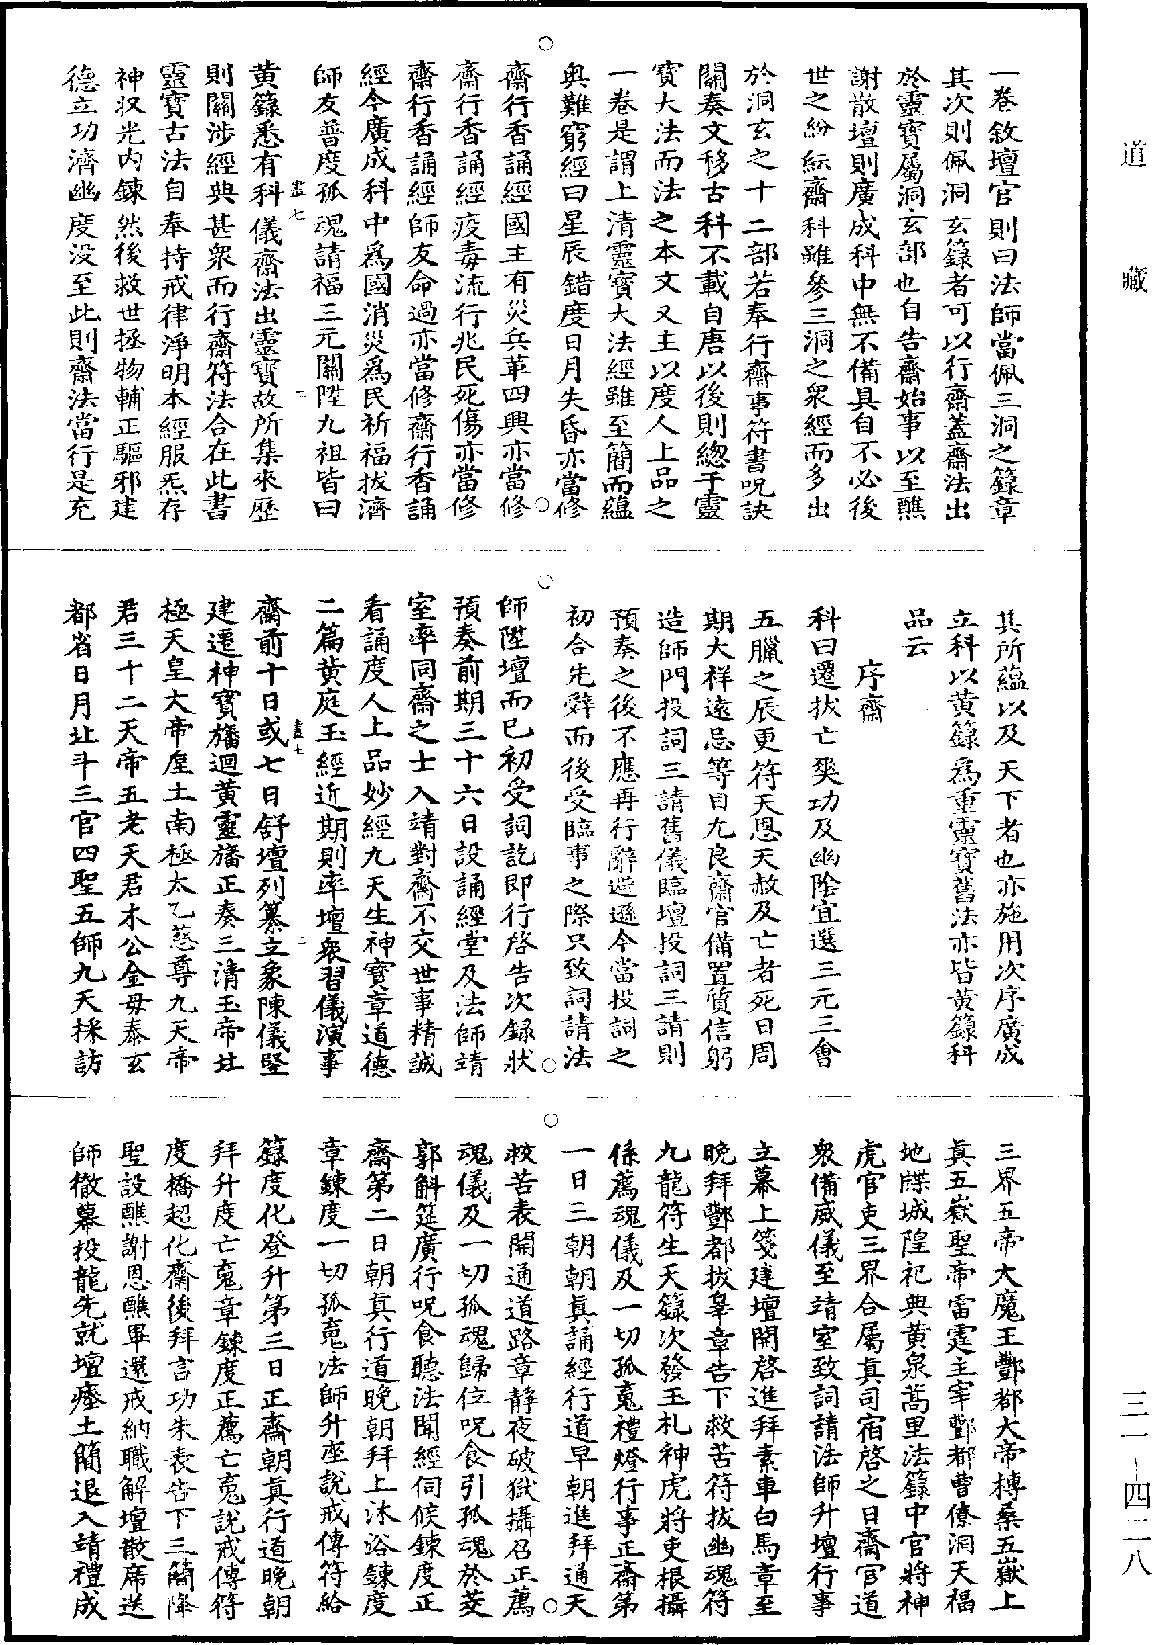 道藏
三一-四二八
一卷敘壇官則曰法師當佩三洞之籙章
其次則佩洞玄籙者可以行齋蓋齋法出
於靈寶屬洞玄部也自告齋始事以至醮
謝散壇則廣成科中無不備具自不必後
世之紛紜齋科雖參三洞之衆經而多出
於洞玄之十二部若奉行齋事符書呪訣
關奏文移古科不載自唐以後則總于靈
寶大法而法之本文又主以度人上品之
一卷是謂上清靈寶大法經雖至簡而蘊
奥難窮經曰星辰錯度日月失昏亦當修
齋行香誦經國主有災兵革四興亦當修
齋行香誦經疫毒流行兆民死傷亦當修
齋行香誦經師友命過亦當修齋行香誦
經今廣成科中爲國消災爲民祈福拔濟
師友普度孤魂請福三元關陞九祖皆曰
黄籙悉有科儀齋法出靈寶故所集來歷
則關涉經典甚衆而行齋符法合在此書
靈寶古法自奉持戒律淨明本經服炁存
神収光内鍊然後救世拯物輔正驅邪建
德立功濟幽度没至此則齋法當行是充
其所蘊以及天下者也亦施用次序廣成
立科以黄籙爲重靈寶舊法亦皆黄籙科
品云
序齋
科曰遷拔亡爽功及幽陰宜選三元三會
五臘之辰更符天恩天赦及亡者死日周
期大祥遠忌等日尤良齋官備置質信躬
造師門投詞三請舊儀臨壇投詞三請則
預奏之後不應再行辭遜今當投詞之
初合先辭而後受臨事之際只致詞請法
師陞壇而已初受詞訖即行啓告次録狀
預奏前期三十六日設誦經堂及法師靖
室率同齋之士入靖對齋不交世事精誠
看誦度人上品妙經九天生神寶章道德
二篇黄庭玉經近期則率壇衆習儀演事
齋前十日或七日舒壇列纂立象陳儀竪
建遷神寶旛迴黄靈旛正奏三清玉帝北
極天皇大帝后土南極太乙慈尊九天帝
君三十二天帝五老天君木公金母泰玄
都省日月北斗三官四聖五師九天採訪
三界五帝大魔王酆都大帝榑桑五嶽上
真五嶽聖帝雷霆主宰酆都曹僚洞天福
地牒城隍祀典黄泉蒿里法籙中官將神
虎官吏三界合屬真司宿啓之日齋官道
衆備威儀至靖室致詞請法師升壇行事
立幕上箋建壇開啓進拜素車白馬章至
晚拜酆都拔罪章告下救苦符拔幽魂符
九龍符生天籙次發玉札神虎將吏根攝
係薦魂儀及一切孤䰟禮燈行事正齋第
一日三朝朝真誦經行道早朝進拜通天
救苦表開通道路章靜夜破獄攝召正薦
魂儀及一切孤魂歸位呪食引孤魂於菱
郭斛筵廣行呪食聽法聞經伺候鍊度正
齋第二日朝真行道晚朝拜上沐浴鍊度
章鍊度一切孤䰟法師升座說戒傳符給
籙度化登升第三日正齋朝真行道晚朝
拜升度亡䰟章鍊度正薦亡䰟說戒傳符
度橋超化齋後拜言功朱表告下三簡降
聖設醮謝恩醮畢還戒納職解壇散席送
師徹幕投龍先就壇瘞土簡退入靖禮成